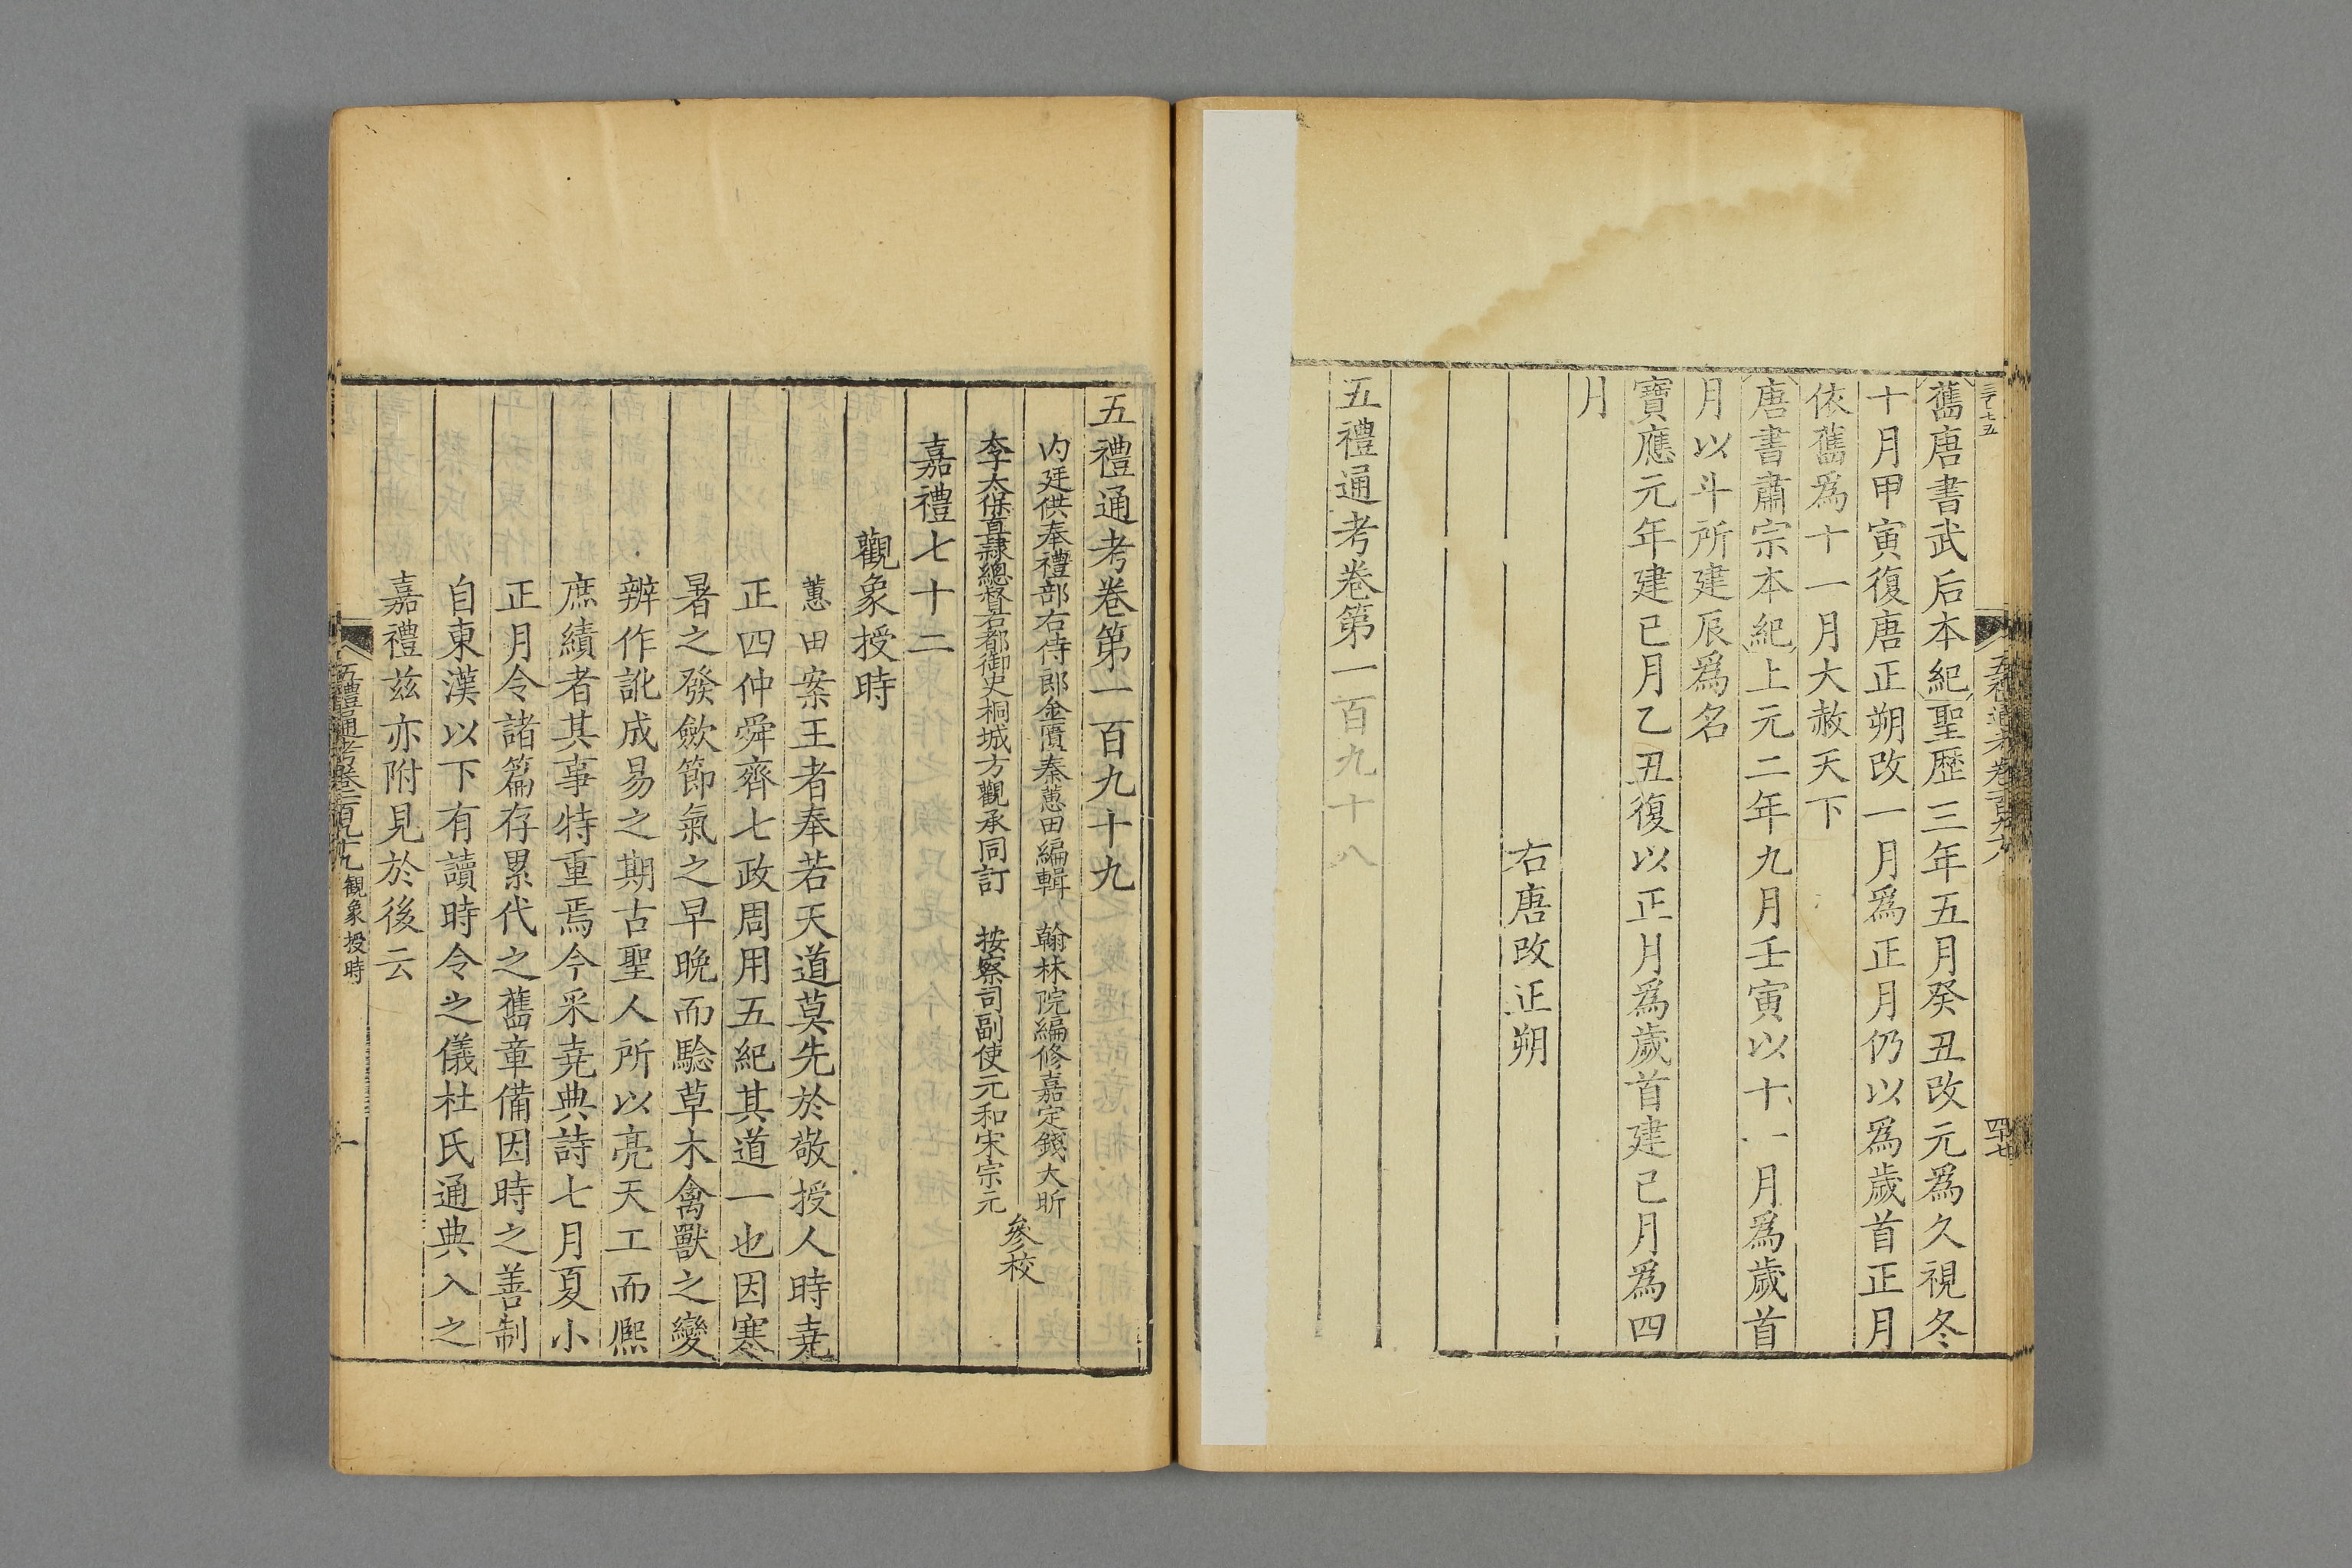 舊唐書武后本紀聖歷三年五月癸丑改元爲久視冬
十月甲寅復唐正朔改一月爲正月仍以爲歲首正月
依舊爲十一月大赦天下
唐書肅宗本紀上元二年九月壬寅以十一月爲歲首
月以斗所建辰爲名
寶應元年建巳月乙丑復以正月爲歲首建巳月爲四
月
右唐改正朔
五禮通考卷第一百九十八
五禮通考卷第一百九十九
內廷供奉禮部右侍郎金匱秦蕙田編輯　翰林院編修嘉定錢大昕
李太保直隸總督右都御史桐城方觀承同訂　按察司副使元和宋宗元
參校
嘉禮七十二
觀象授時
蕙田案王者奉若天道莫先於敬授人時堯
正四仲舜齊七政周用五紀其道一也因寒
暑之發斂節氣之早晚而驗草木禽獸之變
辨作訛成易之期古聖人所以亮天工而熙
庶績者其事特重焉今采堯典詩七月夏小
正月令諸篇存累代之舊章備因時之善制
自東漢以下有讀時令之儀杜氏通典入之
嘉禮茲亦附見於後云
五禮通考卷一百九十九 觀象授時
一